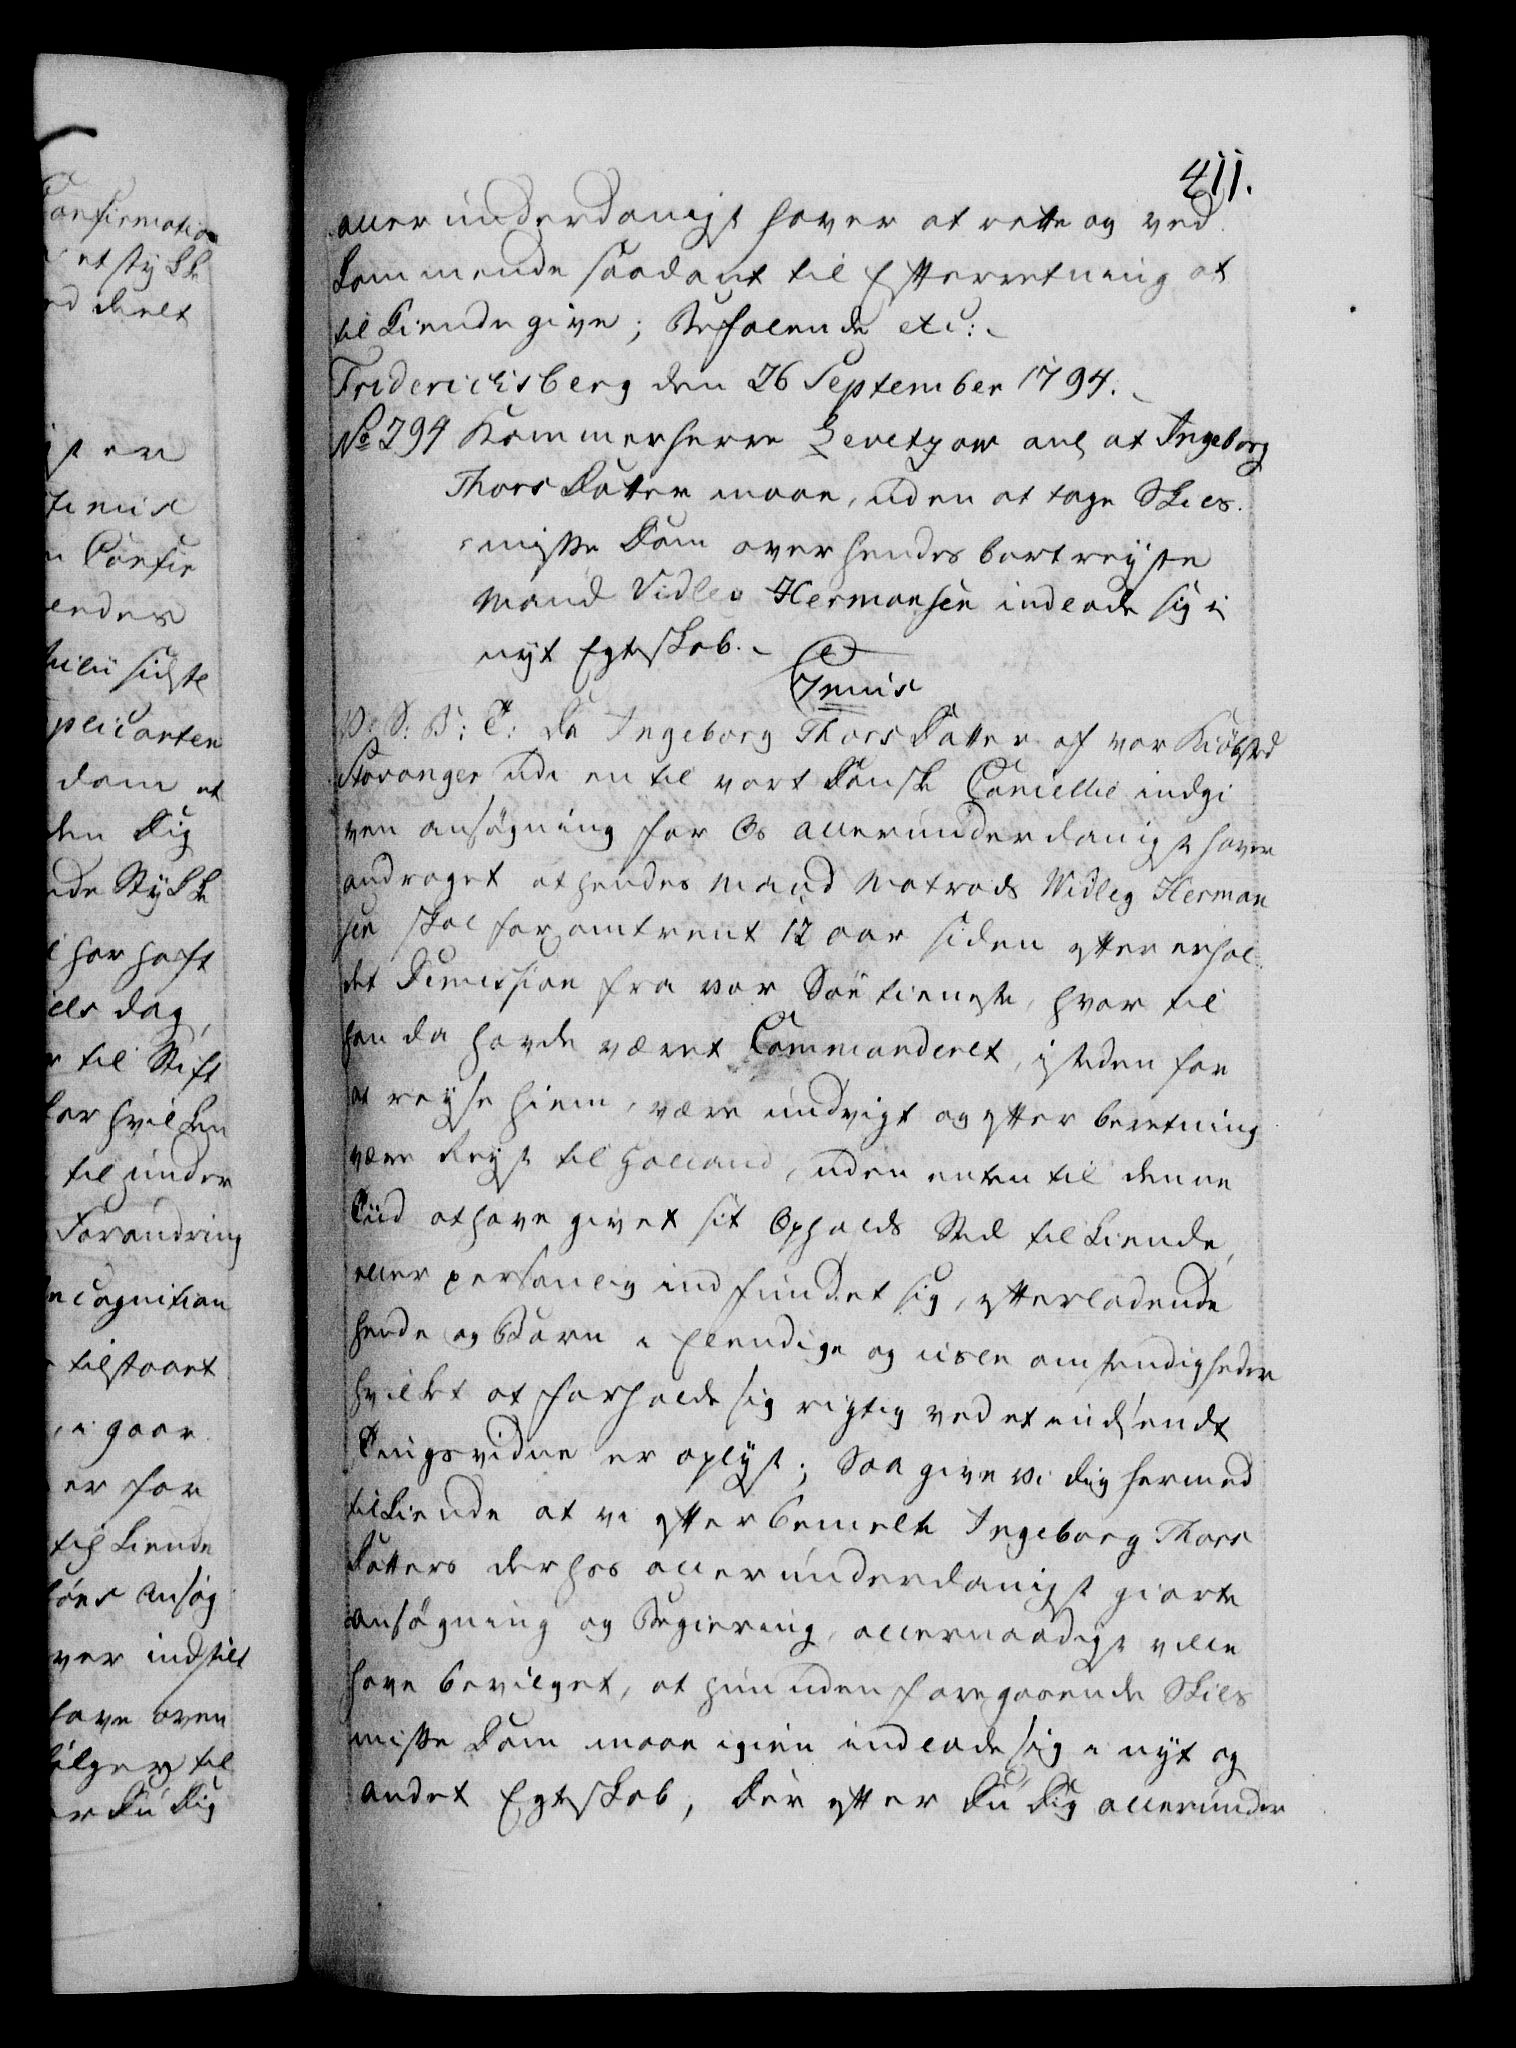 411.
allerunderdanigst haver at rette og ved
kommende saadant til Efterretning at
tilkiendegive; Befalende etc:
Friderichsberg den 26 September 1794.
No 294 Kammerherre Levetzow anl at Ingeborg
Thors Datter maae, uden at tage Skies
misse Dom over hendes bortreyste
Mand Vidlev Hermansen indlade sig i
nyt Egteskab.
Gratis
V: S: B: T: Da Ingeborg Thors Datter af vor Kiøbsted
Stavanger udi en til vort Danske Cancellie indgi
ven ansøgning for Os allerunderdanigst haver
andraget at hendes Mand Matrods Widleg Herman
sen skal for omtrent 12 aar siden efter erhol
det Dimission fra vor Søe tieneste, hvor til
han da havde været Commanderet, isteden for
at reyse hiem, være undvigt og efter beretning
være Reyst til Holland, uden enten til denne
Tiid at have givet sit Opholds Sted tilkiende,
eller personlig indfundet sig, efterladende
hende og Børn i Elendige og usle omstendigheder
hvilket at forholde sig rigtig ved et indsendt
Tingsvidne er oplyst; Saa give vi dig hermed
tilkiende at vi efter bemelte Ingeborg Thors
Datters derhos allerunderdanigst giorte
ansøgning og Begiering, allernaadigst ville
have bevilget, at hun uden foregaaende Skils
misse Dom maae igien indlade sig i nyt og
andet Egteskab, Der efter Du Dig allerunder
Confirmation
et stykke
deelt
Confir
endes
sidste
plicanten
dom at
den Dig
nde Stykke
har haft
dag,
til Stift
for hvilken
til under
Forandring
Recognition
tilstaaet
i gaar
er for
til kiende
Ansøg
ver indstilt
have oven
følger til
er Du Dig